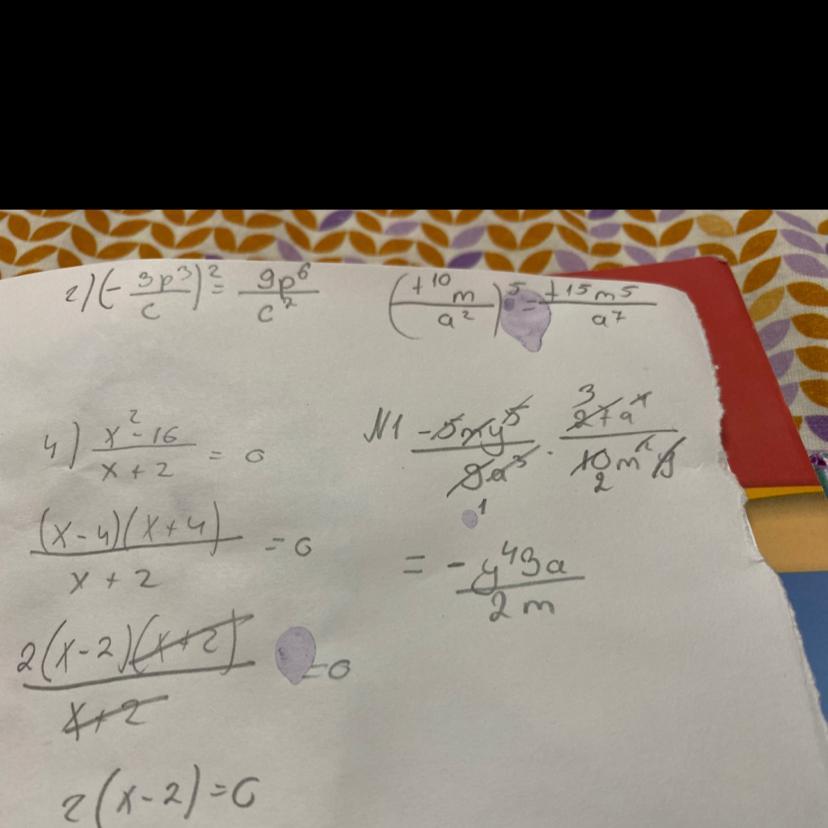 2) (- 3p³/c)² = 9p⁶/c²
(t¹⁰m/a²)⁵ = t¹⁵m⁵/a⁷
4) x²-16/x+2 = 0
(x-4)(x+4)/x+2 = 0
2(x-2)(x+2)/x+2 = 0
2(x-2)=0
N1 -5my⁵/9a³ · 3 27a⁴/10m²y 2
1
= -y⁴3a/2m